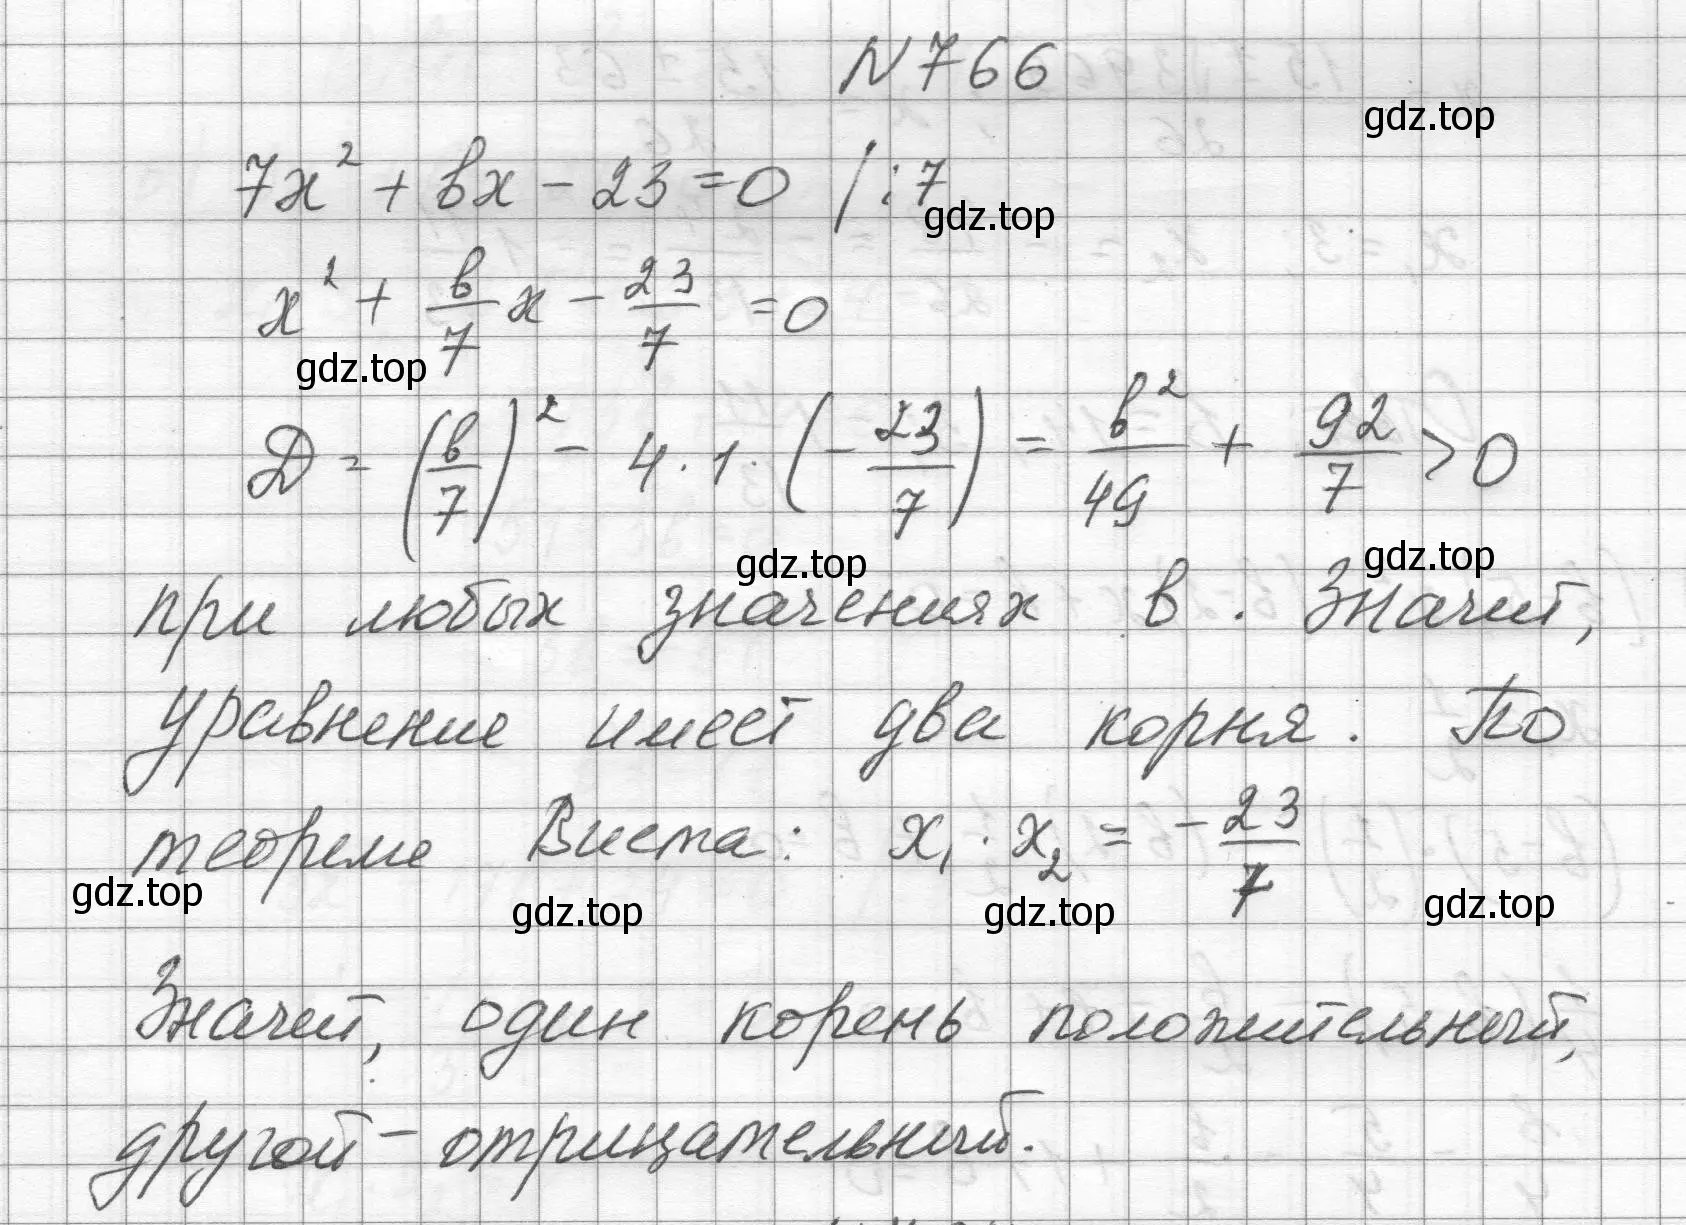 N 766
gdz.top
7x² + bx − 23 = 0 | : 7
gdz.top
x² + b/7 x − 23/7 = 0
gdz.top
D = (b/7)² − 4 · 1 · (−23/7) = b²/49 + 92/7 > 0
gdz.top
gdz.top
при любых значениях b. Значит,
уравнение имеет два корня. По
теореме Виета: x₁ · x₂ = −23/7
gdz.top
gdz.top
gdz.top
gdz.top
Значит, один корень положительный,
другой – отрицательный.